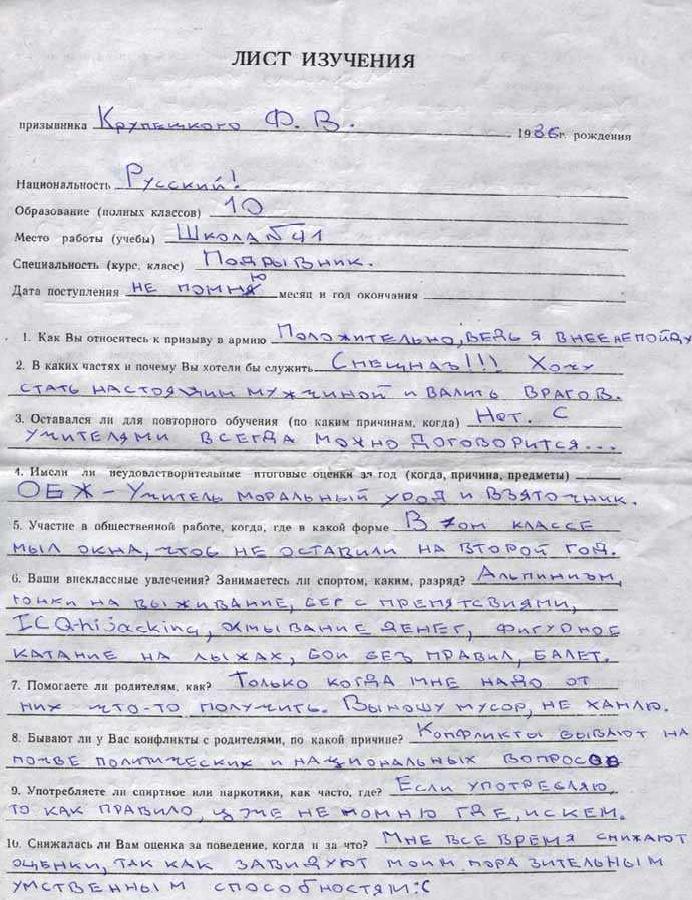 ЛИСТ ИЗУЧЕНИЯ
призывника Крупецкого Ф. В. 1986г. рождения
Национальность Русский!
Образование (полных классов) 10
Место работы (учебы) Школа №41
Специальность (курс, класс) Подрывник.
Дата поступления не помню месяц и год окончания
1. Как Вы относитесь к призыву в армию Положительно, ведь я в нее не пойду
2. В каких частях и почему Вы хотели бы служить Спецназ!!! Хочу
стать настоящим мужчиной и валить врагов.
3. Оставался ли для повторного обучения (по каким причинам, когда) Нет. С
учителями всегда можно договорится...
4. Имели ли неудовлетворительные итоговые оценки за год (когда, причина, предметы)
ОБЖ – Учитель моральный урод и взяточник.
5. Участие в общественной работе, когда, где в какой форме В 7ом классе
мыл окна, чтоб не оставили на второй год.
6. Ваши внеклассные увлечения? Занимаетесь ли спортом, каким, разряд? Альпинизм,
гонки на выживание, бег с препятсвиями,
ICQ-hijacking, отмывание денег, фигурное
катание на лыжах, бои без правил, балет.
7. Помогаете ли родителям, как? Только когда мне надо от
них что-то получить. Выношу мусор, не хамлю.
8. Бывают ли у Вас конфликты с родителями, по какой причине? Конфликты бывают на
почве политических и национальных вопросов
9. Употребляете ли спиртное или наркотики, как часто, где? Если употребляю,
то как правило, уже не помню где, и с кем.
10. Снижалась ли Вам оценка за поведение, когда и за что? Мне все время снижают
оценки, так как завидуют моим поразительным
умственным способностям :(